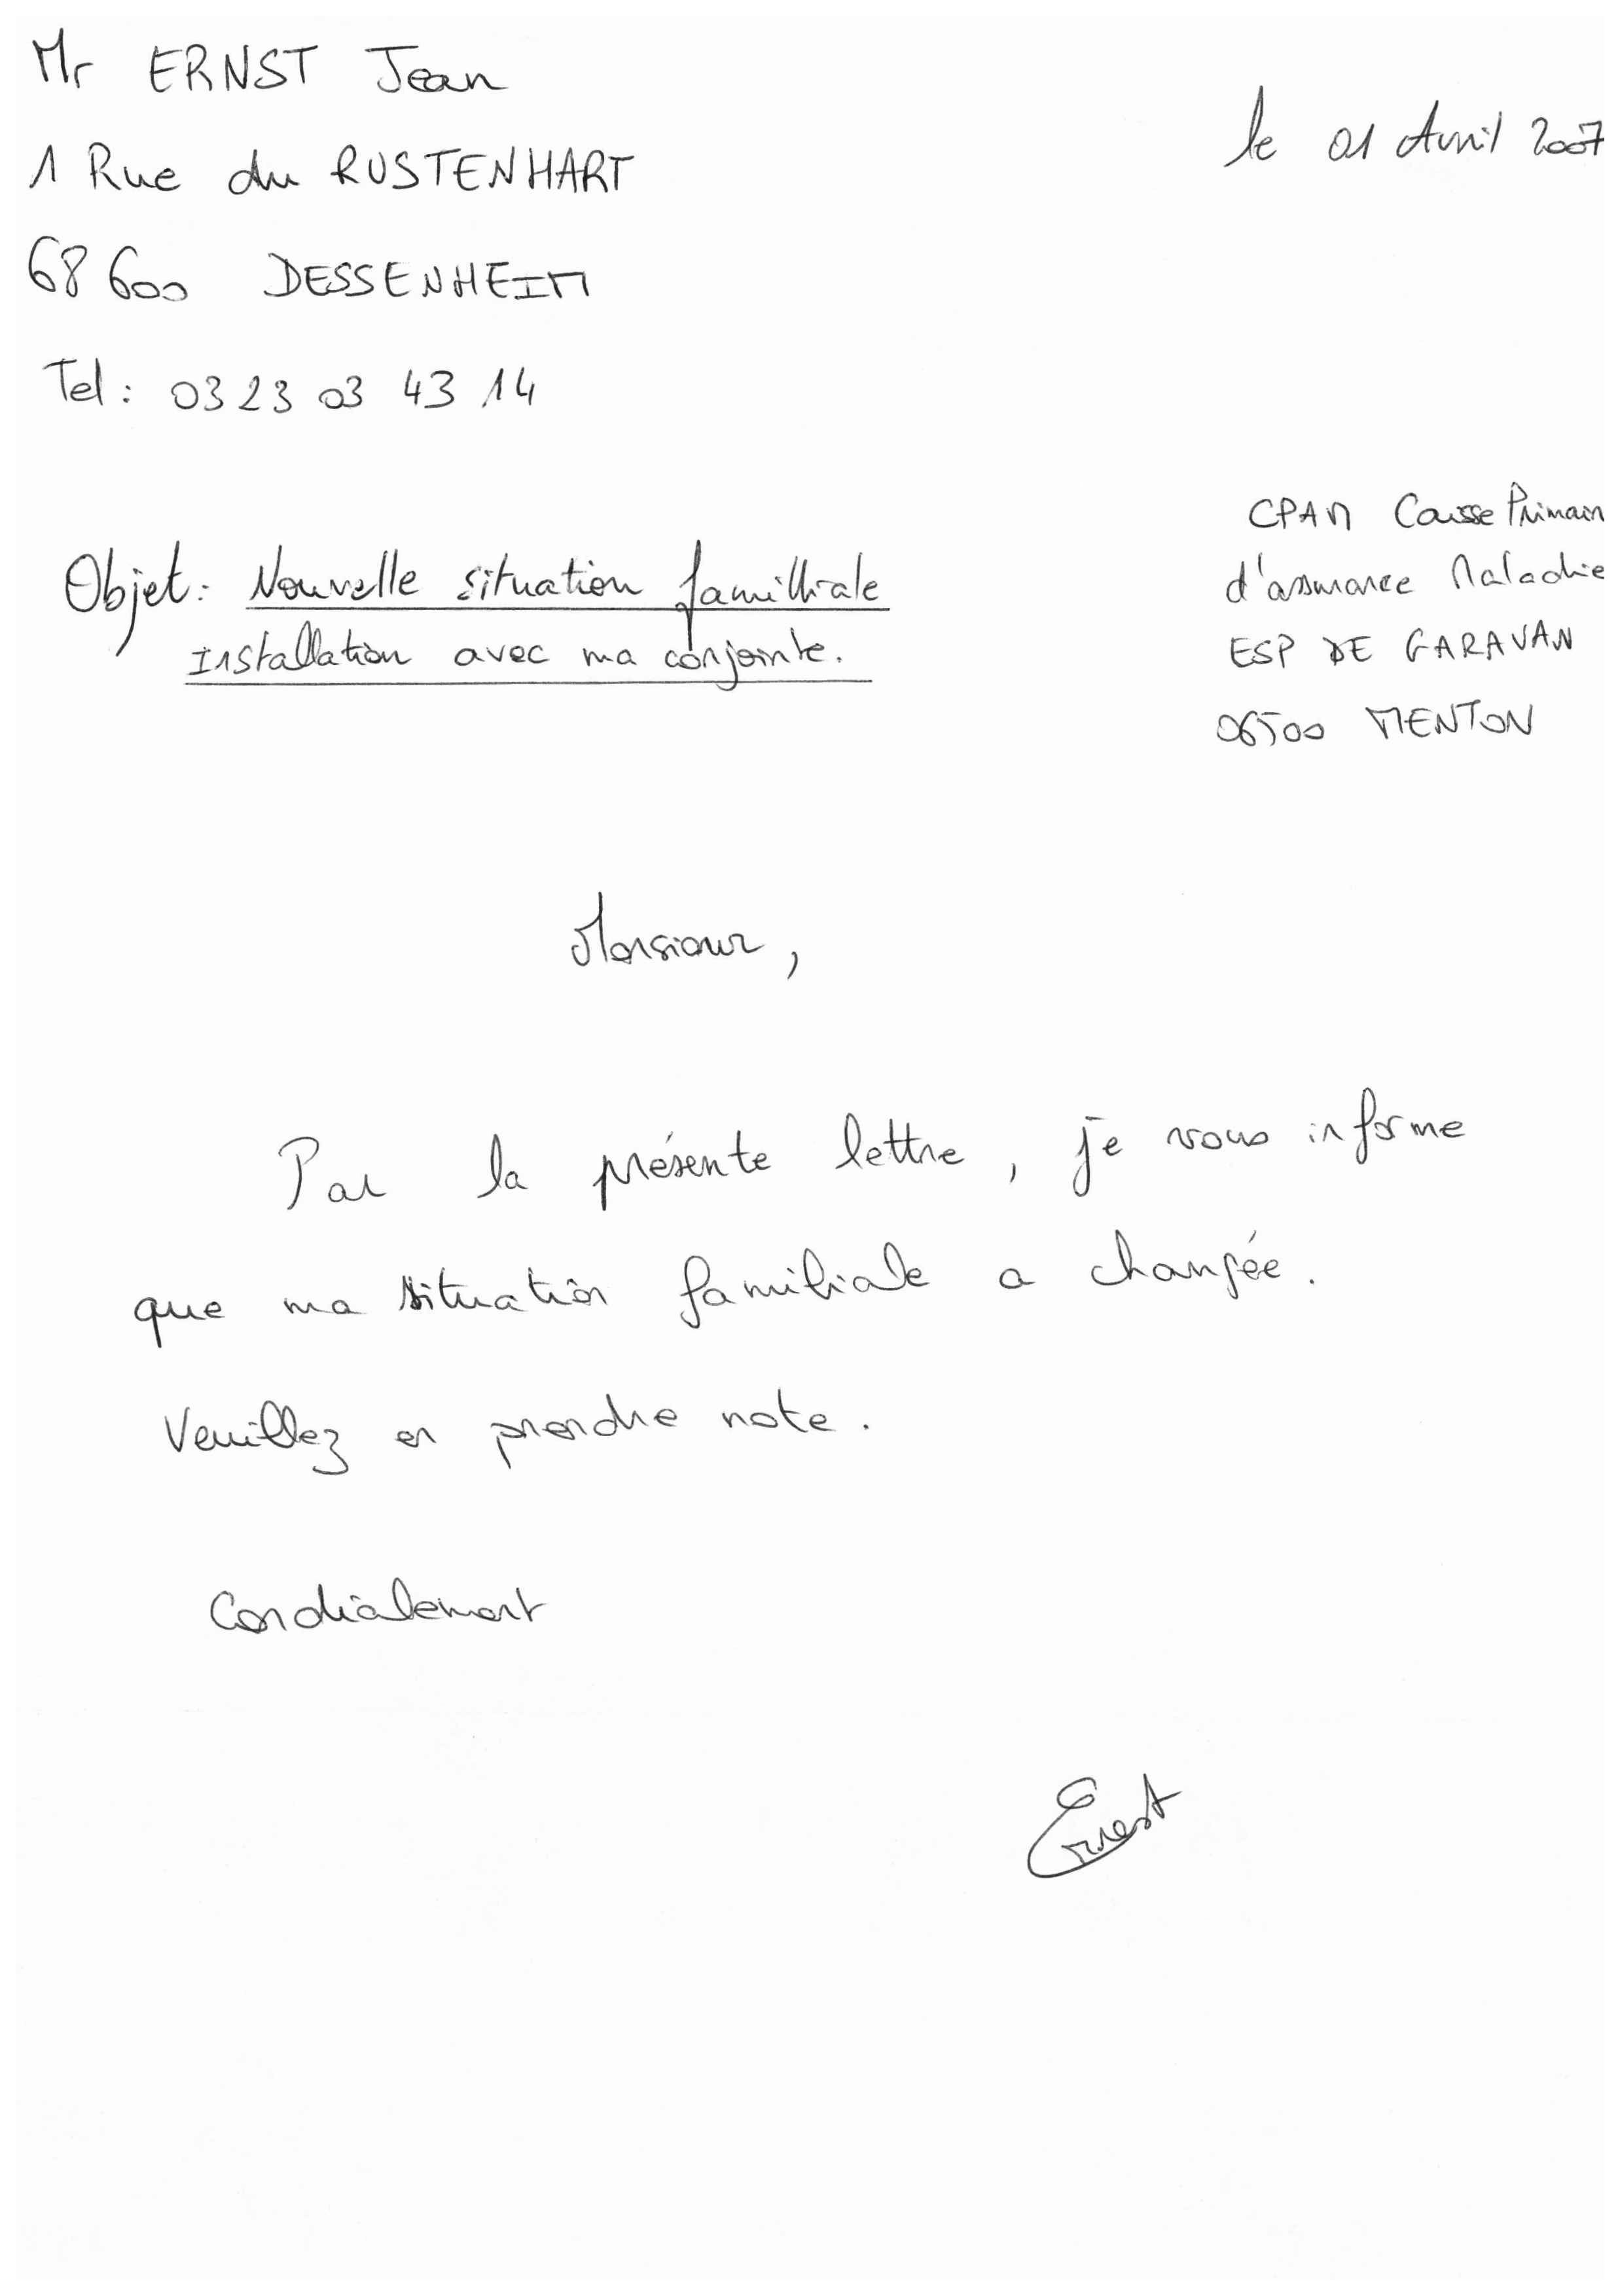 Mr ERNST Jean
le 01 Avril 2007
1 Rue du RUSTENHART
68 600 DESSENHEIM
Tel : 03 23 03 43 14
CPAM Caisse Primair
d'assurance Maladie
ESP DE GARAVAN
06500 MENTON
Objet : Nouvelle situation familliale
Installation avec ma conjointe.
Monsieur,
Par la présente lettre, je vous informe
que ma situation familiale a changée.
Veuillez en prendre note.
Cordialement
Ernest